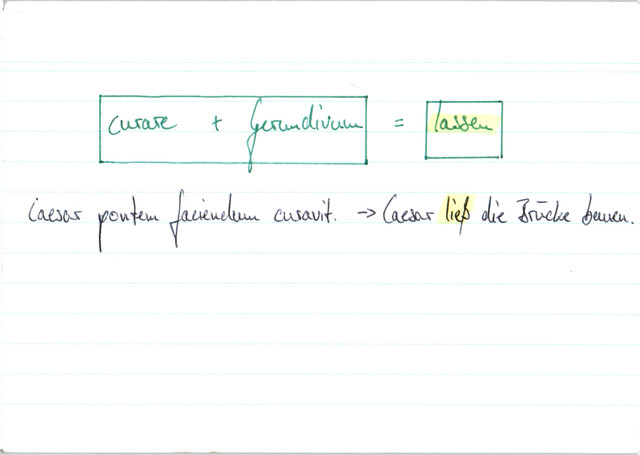 curare + Gerundivum = lassen
Caesar pontem faciendum curavit. → Caesar ließ die Brücke bauen.